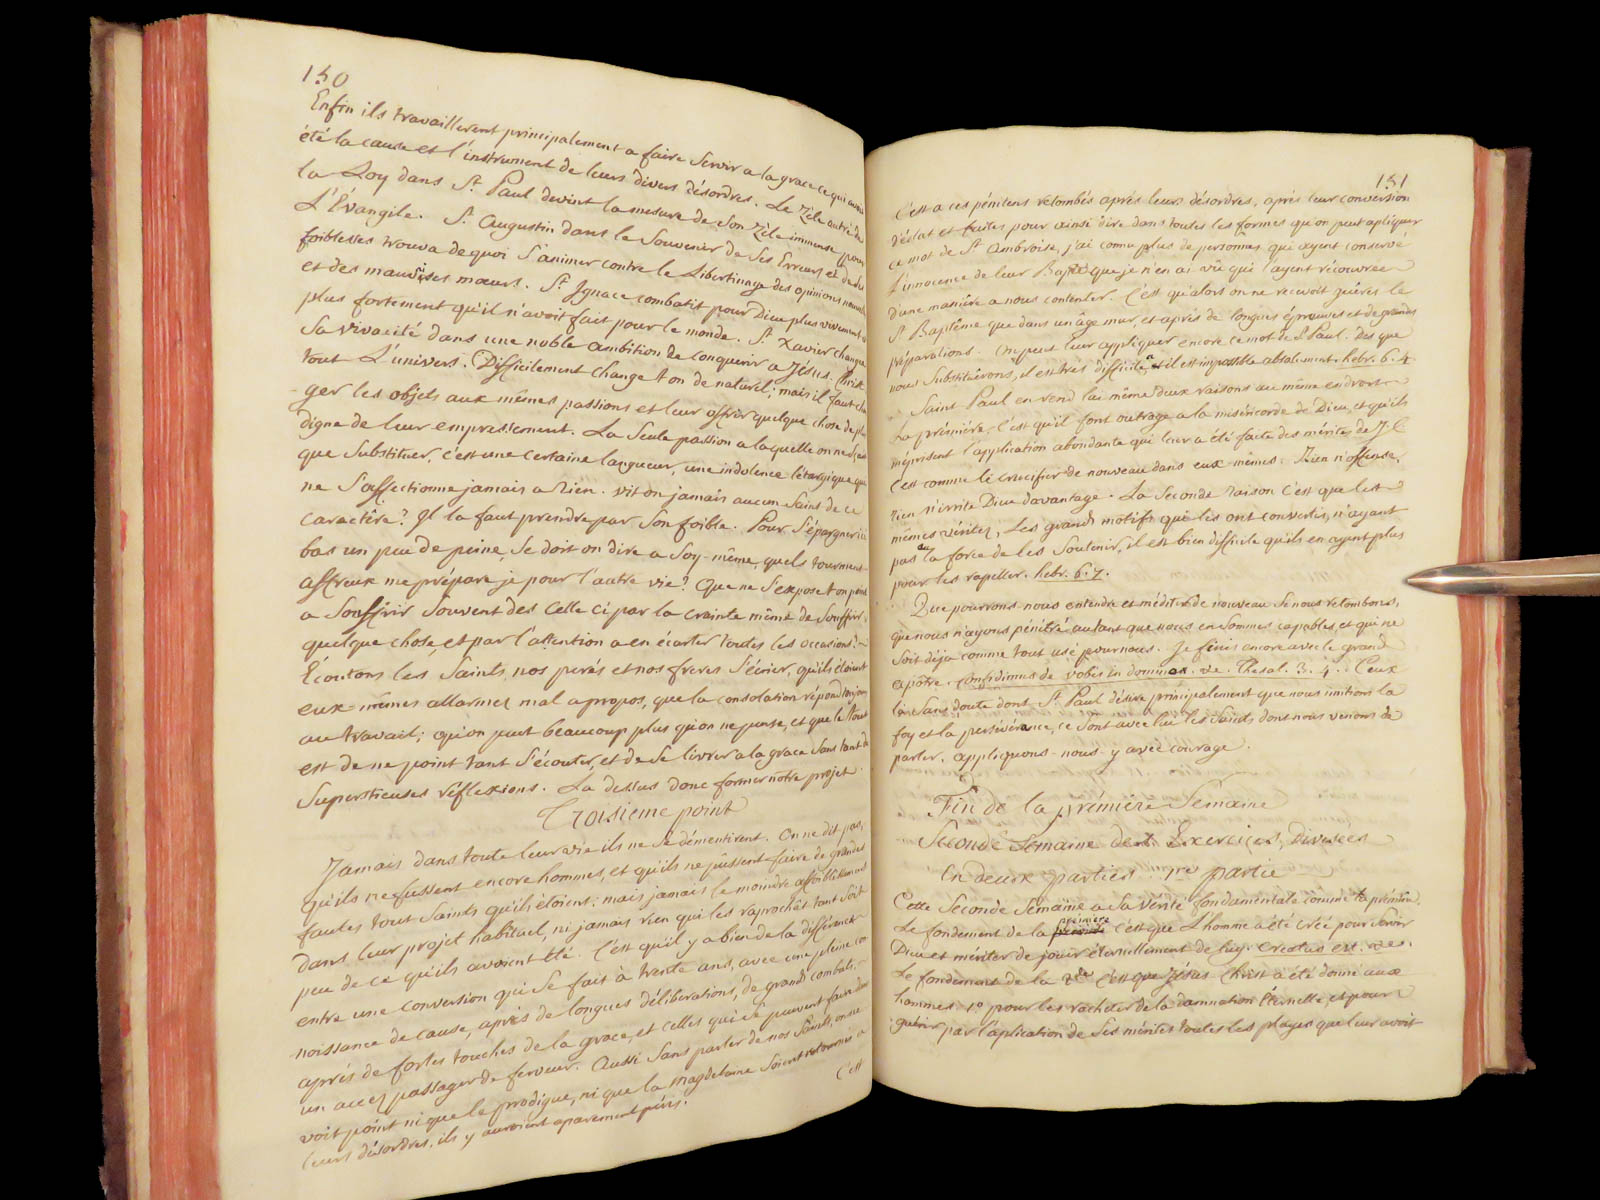 150
Enfin ils travaillerent principalement a faire servir a la grace ce qui avoit
été la cause et l'instrument de leurs divers désordres. Le zèle outré de
la Loy dans St Paul devint la mesure de son zèle immense pour
L'Évangile. St Augustin dans le souvenir de ses Erreurs et de ses
foiblesses trouva de quoi s'animer contre le Libertinage des opinions
et des mauvaises mœurs. St Ignace combatit pour Dieu plus vivement et
plus fortement qu'il n'avoit fait pour le monde. St Xavier changea
sa vivacité dans une noble ambition de conquerir a Jésus-Christ
tout L'univers. Difficilement change t on de naturel; mais il faut chan
-ger les objets aux mêmes passions et leur offrir quelque chose de plus
digne de leur empressement. La seule passion a laquelle on ne
que substituer, c'est une certaine langueur, une indolence létargique qui
ne s'affectionne jamais a Rien. vit on jamais aucun saint de ce
caractère? Il la faut prendre par son foible. Pour s'épargner ici
bas un peu de peine, se doit on dire a soy-même, quels tourmens
affreux me préparé je pour l'autre vie? Que ne s'expose t on point
a souffrir souvent des celle ci par la crainte même de souffrir
quelque chose et par l'attention a en écarter toutes les occasions?
Écoutons les Saints, nos peres et nos freres s'écrier, qu'ils étoient
eux-mêmes allarmez mal a propos, que la consolation répond toujours
au travail; qu'on peut beaucoup plus qu'on ne pense, et que le tout
est de ne point tant s'écouter, et de se livrer a la grace sans tant de
superstieuses réflexions. La dessus donc former notre projet.
Troisieme point
Jamais dans toute leur vie ils ne se démentirent. On ne dit pas,
qu'ils ne fussent encore hommes, et qu'ils ne pûssent faire de grandes
fautes tout saints qu'ils étoient; mais jamais le moindre affoiblissement
dans leur projet habituel, ni jamais rien qui les raprochât tant soit
peu de ce qu'ils avoient été. C'est qu'il y a bien de la différence
entre une conversion qui se fait à trente ans, avec une pleine con
-noissance de cause, après de longues déliberations, de grands combats,
après de fortes touches de la grace, et celles qui se peuvent faire dans
un accez passager de ferveur. Aussi sans parler de nos saints, on ne
voit point ni que le prodigue, ni que la Magdelaine soient retournés a
leurs désordres, ils y auroient aparement péris.
C'est
151
C'est a ces pénitens retombés après leurs désordres, après leur conversion
d'éclat et faites pour ainsi dire dans toutes les formes qu'on peut apliquer
ce mot de St Ambroise, j'ai connu plus de personnes qui ayent conservé
L'innocence de leur Baptême que je n'en ai vû qui l'ayent récouvrée
d'une manière a nous contenter. C'est qu'alors on ne recevoit guères le
St Baptême que dans un âge mur, et après de longues épreuves et de grands
préparations. On peut leur appliquer encore ce mot de St Paul. Des que
nous substituerons, il est très difficile, et il est impossible absolument. hebr. 6. 4.
Saint Paul en rend lui même deux raisons au même endroit
La prémière, c'est qu'il font outrage a la miséricorde de Dieu, et qu'ils
méprisent l'application abondante qui leur a été faite des mérites de J. C
c'est comme le crucifier de nouveau dans eux-mêmes. Rien n'offense,
rien n'irrite Dieu davantage. La seconde raison c'est que les
mêmes véritez, les grands motifs qui les ont convertis, n'ayant
pas eu la force de les soutenir, il est bien difficile qu'ils en ayent plus
pour les rapeller. hebr. 6. 7.
Que pourrons-nous entendre et méditer de nouveau si nous retombons,
que nous n'ayons pénétré autant que nous en sommes capables, et qui ne
soit déja comme tout usé pour nous. Je finis encore avec le grand
apôtre. confidimus de vobis in domino. 2e. Thesal. 3. 4. Ceux
la sans doute dont St Paul désire principalement que nous imitions la
foy et la persévérance, ce sont avec lui les saints dont nous venons de
parler, appliquons-nous-y avec courage.
Fin de la prémière Semaine
Seconde Semaine des Exercices, Divisées
En deux parties. 1re partie
Cette Seconde Semaine a sa vérité fondamentale comme la prémière.
Le fondement de la prémière c'est que L'homme a été créé pour servir
Dieu et mériter de jouir éternellement de luy. creatus est. &c.
Le fondement de la 2de c'est que Jésus Christ a été donné aux
hommes 1o pour les racheter de la damnation éternelle, et pour
guérir par l'aplication de ses mérites toutes les playes que leur avoit